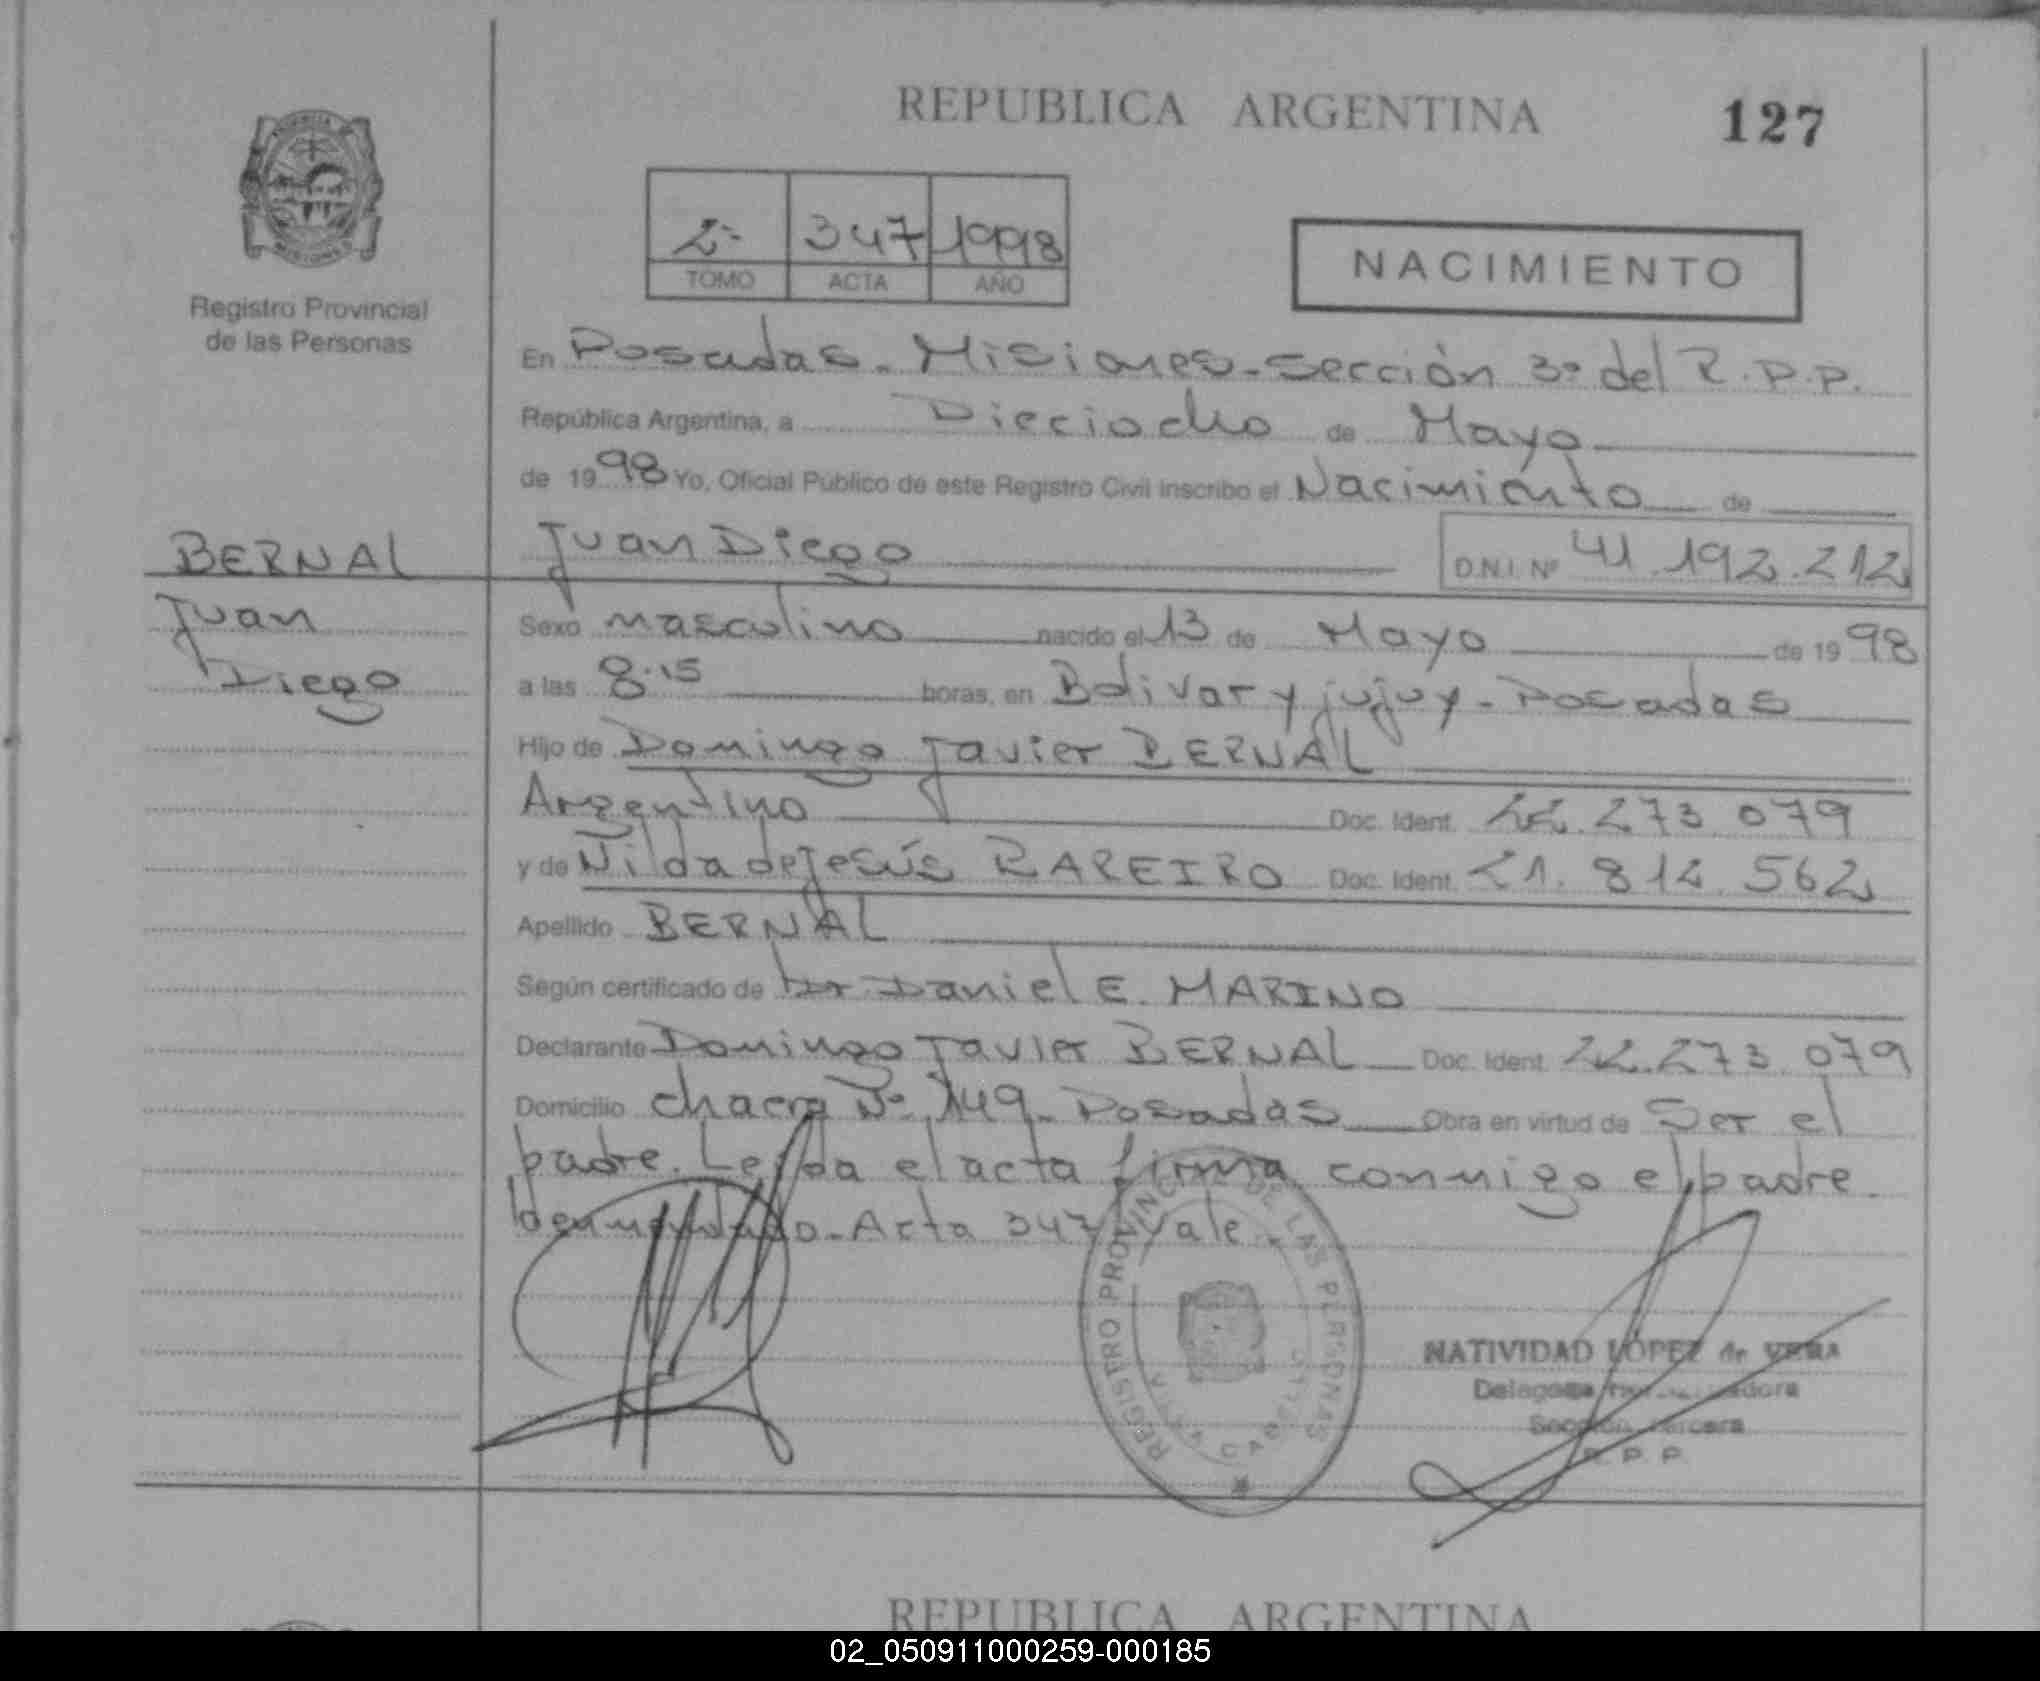 REPUBLICA ARGENTINA
127
2º 347 1998
TOMO ACTA AÑO
NACIMIENTO
Registro Provincial
de las Personas
En Posadas - Misiones - Sección 3º del R.P.P.
República Argentina, a Dieciocho de Mayo
de 1998 Yo, Oficial Público de este Registro Civil inscribo el Nacimiento de
BERNAL
Juan Diego
D.N.I. Nº 41.192.212
Juan
Diego
Sexo masculino nacido el 13 de Mayo de 1998
a las 8.15 horas, en Bolivar y jujuy - Posadas
Hijo de Domingo Javier BERNAL
Argentino Doc. Ident. 22.273.079
y de Nilda de Jesús RAREIRO Doc. Ident. 21.812.562
Apellido BERNAL
Según certificado de Dr Daniel E. MARINO
Declarante Domingo Javier BERNAL Doc. Ident. 22.273.079
Domicilio chacra Nº 149 - Posadas Obra en virtud de Ser el
padre. Leida el acta firma conmigo el padre.
Acta 347 Vale.
REGISTRO PROVINCIAL DE LAS PERSONAS
NATIVIDAD LÓPEZ de VERA
Delegada
Sección Tercera
R. P. P.
REPUBLICA ARGENTINA
02_050911000259-000185